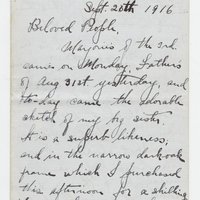 Sept. 20th, 1916
Beloved People,
Marjorie's of the 3rd.
came on Monday, Father's
of Aug 31st yesterday, and
to-day came the adorable
sketch of my big sister.
It is a superb likeness,
and in the narrow dark oak
frame which I purchased
this afternoon for a shilling